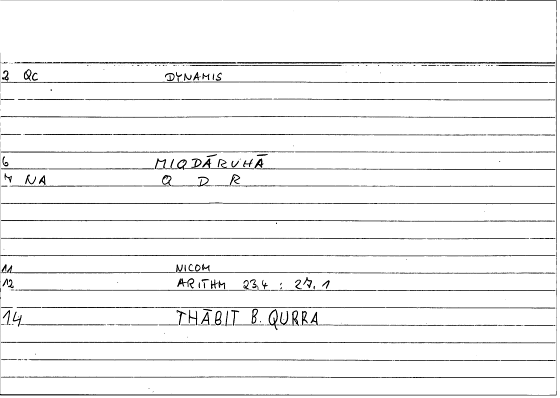 2 QC DYNAMIS
6 MIQDĀRUHĀ
7 NA Q D R
11 NICOM
12 ARITHM 23,4 : 27,1
14 THĀBIT B. QURRA